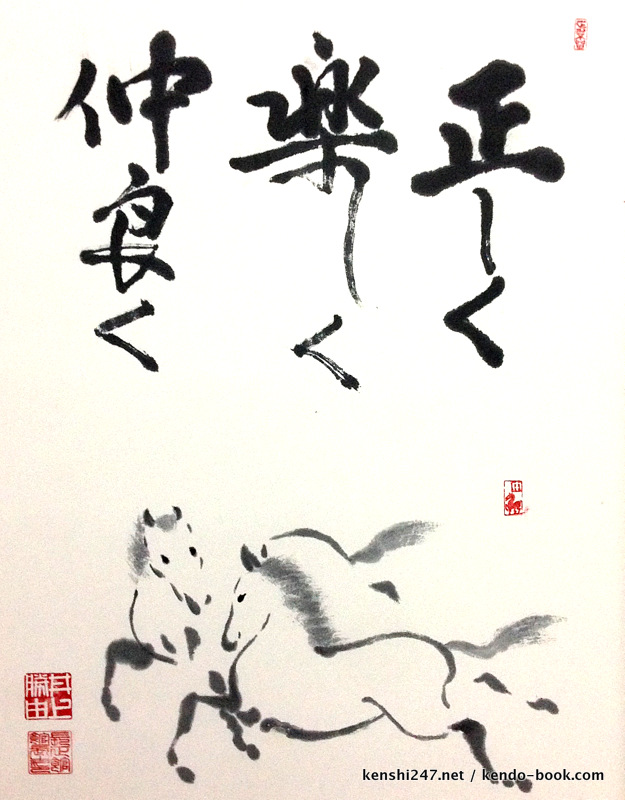 正しく
楽しく
仲良く
井上
勝由
kenshi247.net / kendo-book.com